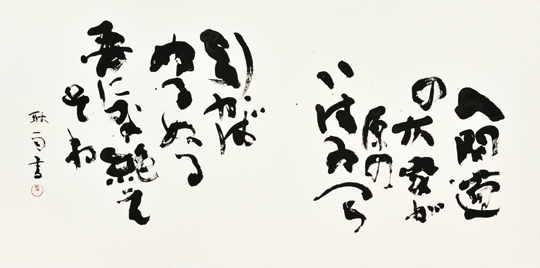 入間道
の大家が
原の
いはゐつら
引かば
ぬるぬる
吾にな絶え
そね
耿 書